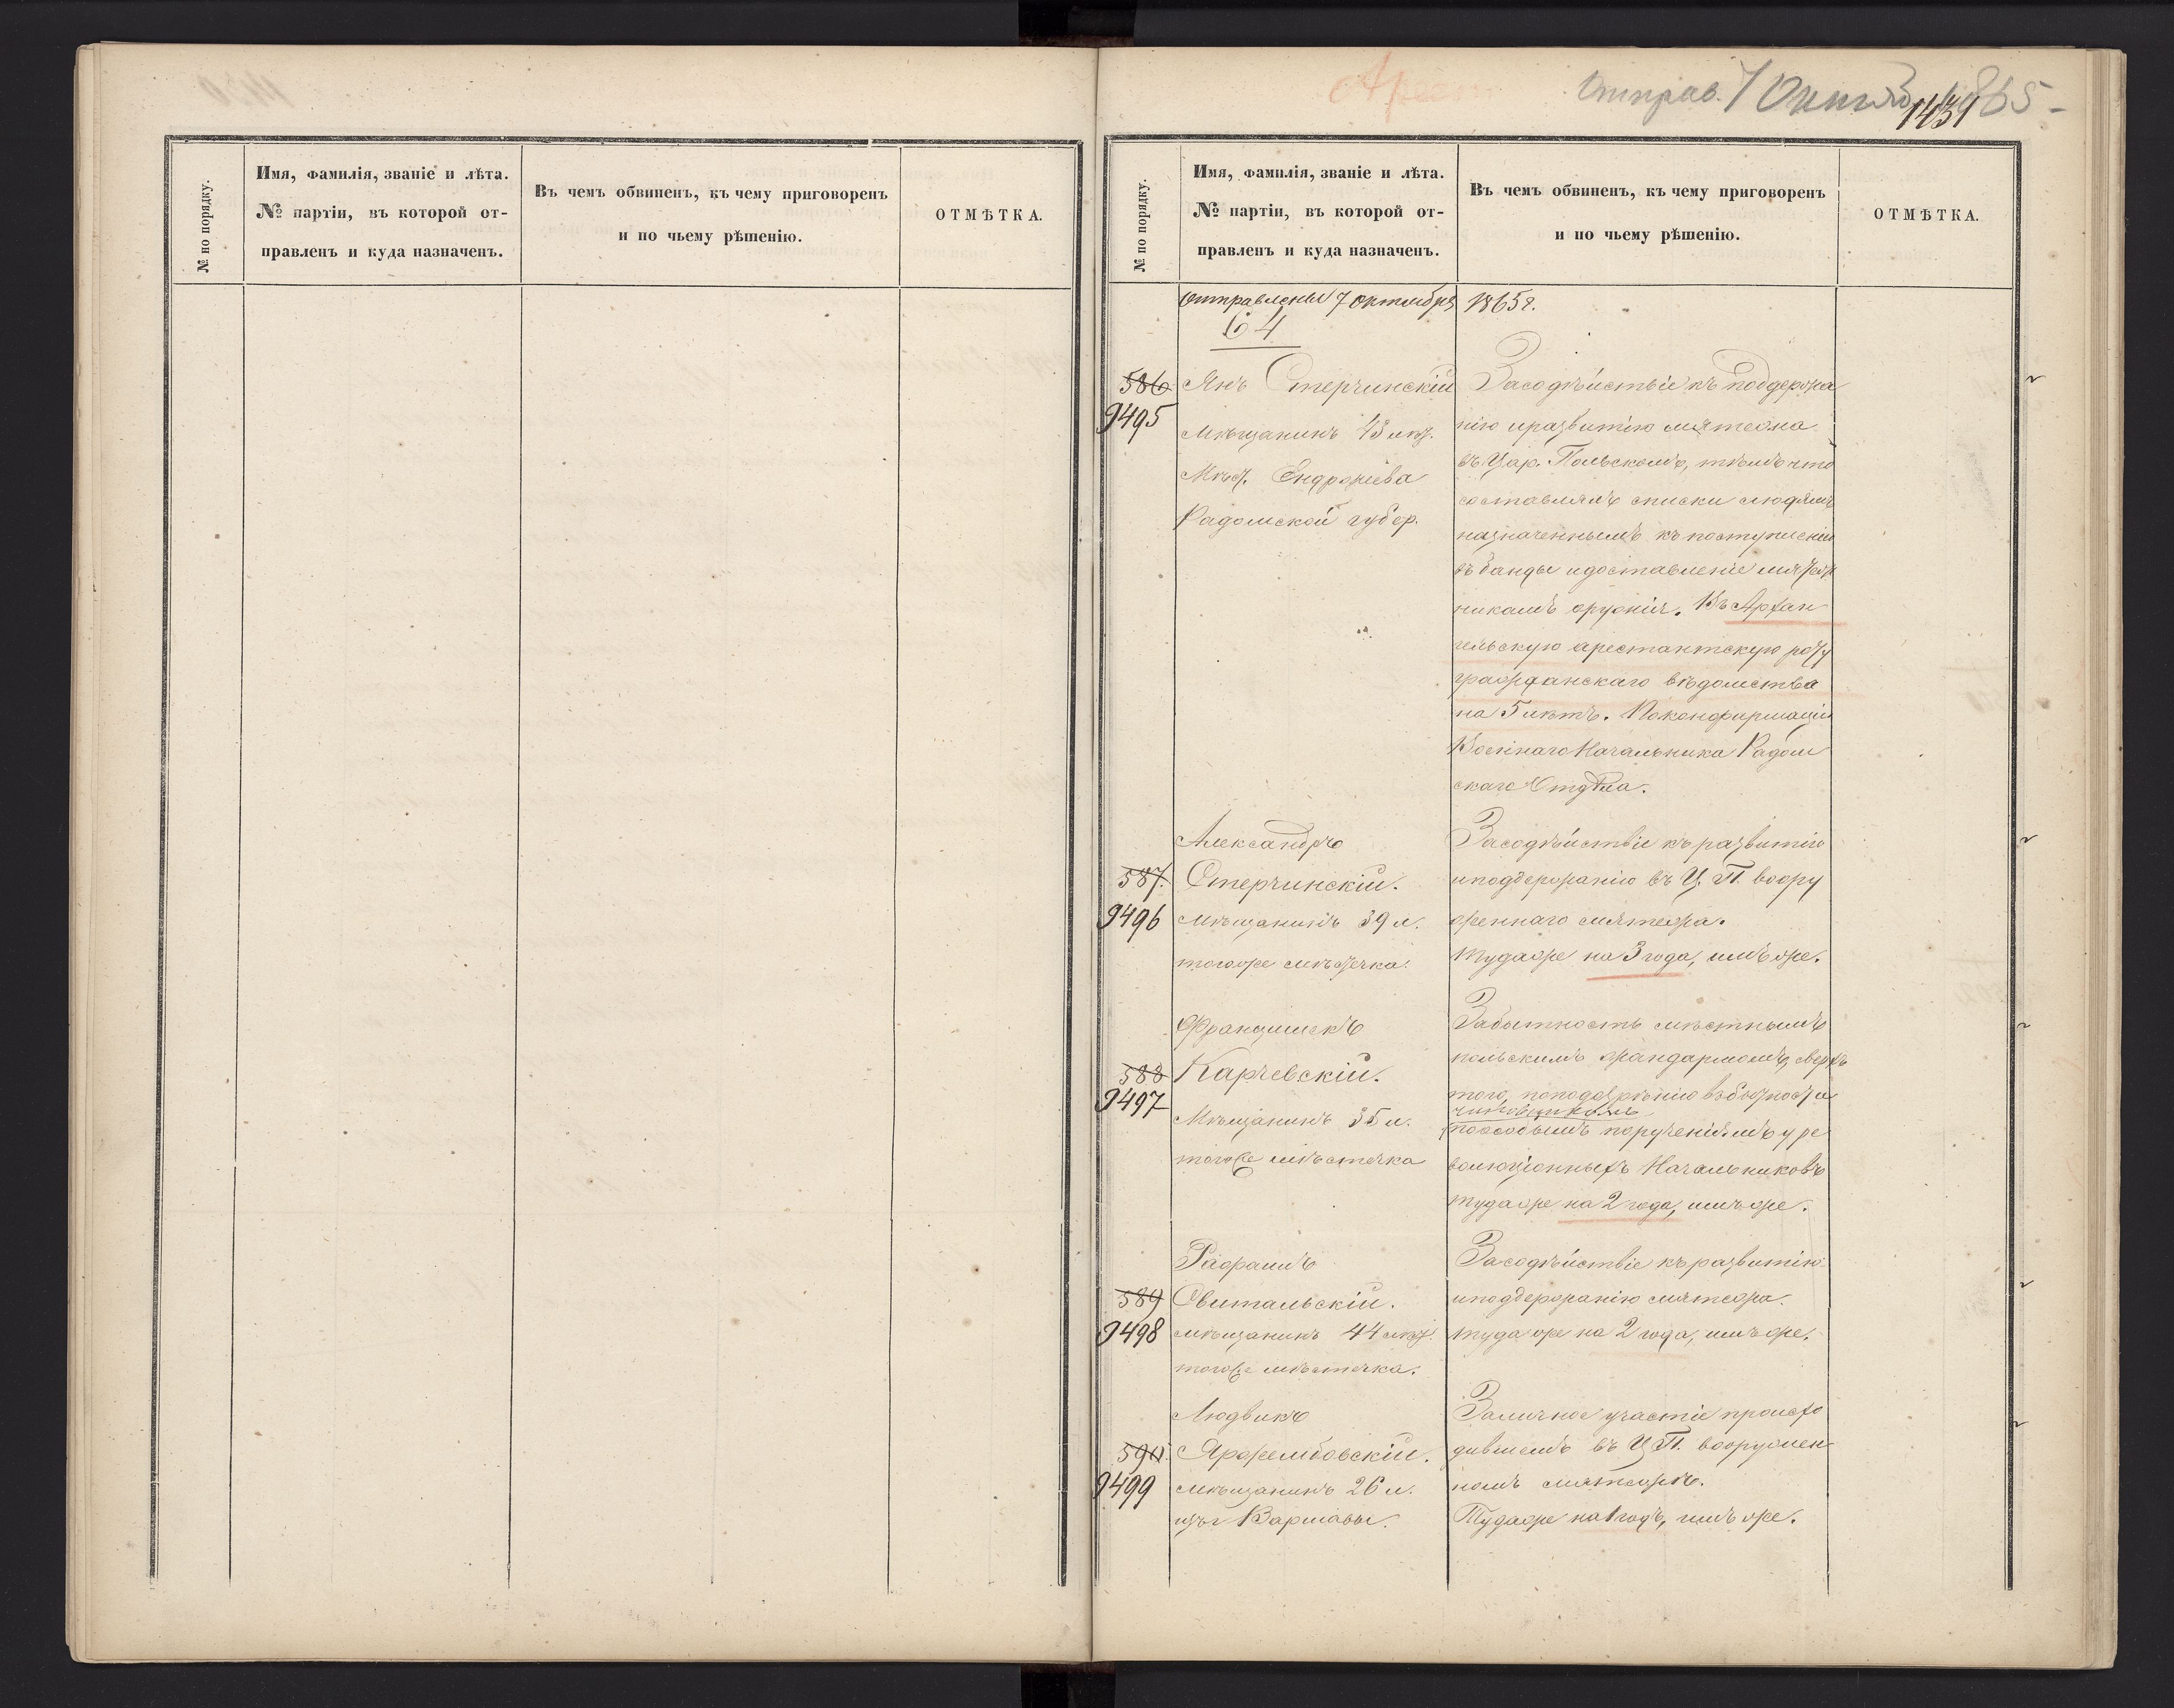 Арест
Отправ. 7 Октяб 1865 -
1431
№ по порядку.
Имя, Фамилія, званіе и лѣта.
№ партіи, въ которой от-
правленъ и куда назначенъ.
Въ чемъ обвиненъ, къ чему приговоренъ
и по чьему рѣшенію.
ОТМѢТКА.
№ по порядку.
Имя, Фамилія, званіе и лѣта.
№ партіи, въ которой от-
правленъ и куда назначенъ.
Въ чемъ обвиненъ, къ чему приговоренъ
и по чьему рѣшенію.
ОТМѢТКА.
Отправлены 7 октября 1865 г.
64
586
9495
Янъ Стерчинскій
Мѣщанинъ 43 лѣт.
Мѣст. Ендржеіева
Радомской губер.
За содѣйствіе къ поддержа
нію и развитію мятежа
въ Цар. Польскомъ, тѣмъ что
составлялъ списки людямъ
назначеннымъ къ поступленію
въ банды и доставленіе мятеж
никамъ оружія. Въ Архан
гельскую арестантскую роту
гражданскаго вѣдомства
на 5 лѣтъ. По конфирмаціи
Военнаго Начальника Радом
скаго Отдѣла.
587.
9496
Александръ
Стерчинскій.
Мѣщанинъ 39 л.
тогоже мѣстечка.
За содѣйствіе къ развитію
и поддержанію въ Ц. П. воору
женнаго мятежа.
Туда же на 3 года, имъ же.
588
9497
Францишекъ
Карчевскій.
Мѣщанинъ 35 л.
тогоже мѣстечка
За бытность мѣстнымъ
польскимъ жандармомъ, сверхъ
того, по подозрѣнію въ бытности
чиновникомъ
по особымъ порученіямъ у ре
волюціонныхъ Начальниковъ
туда же на 2 года, имъ же.
589
9498
Ражраимъ
Свитальскій.
мѣщанинъ 44 лѣт.
тогоже мѣстечка.
За содѣйствіе къ развитію
и поддержанію мятежа.
туда же на 2 года, имъ же.
590.
9499
Людвикъ
Яржембовскій.
мѣщанинъ 26 л.
изъ г Варшавы.
За личное участіе происхо
дившемъ въ Ц П. вооружен
номъ мятежѣ.
Туда же на 1 годъ, имъ же.